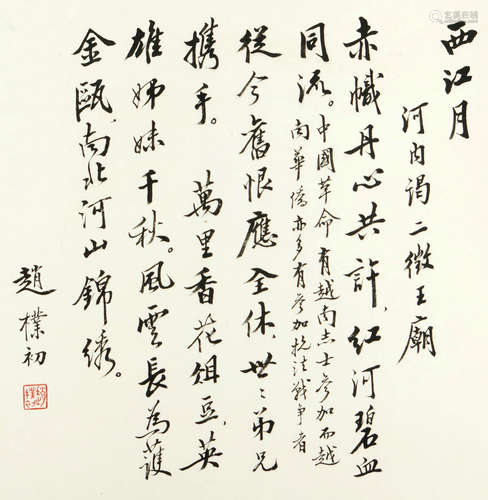 西江月
河内谒二徵王廟
赤幟丹心共許，红河碧血
同流。中國革命有越南志士參加而越
南華僑亦多有參加抗法戰争者
從今舊恨應全休，世〻弟兄
携手。 萬里香花俎豆，英
雄姊妹千秋。風雲長為護
金甌，南北河山錦绣。
趙樸初